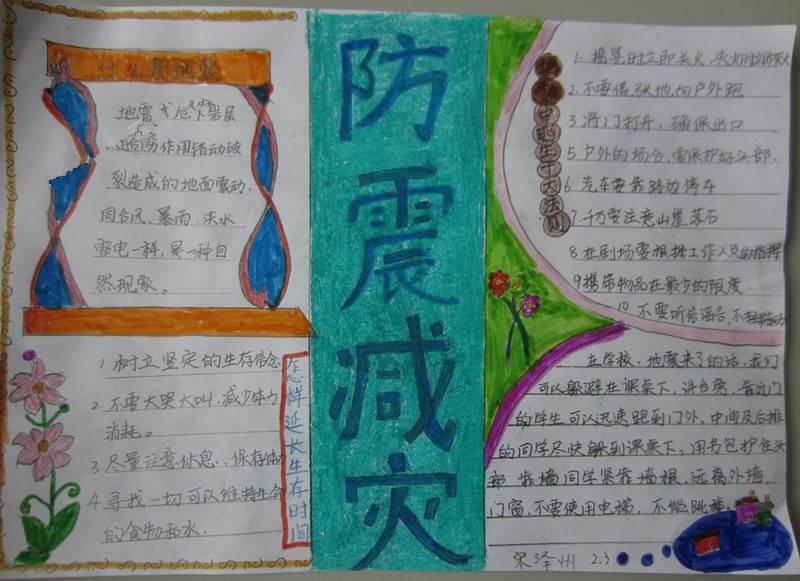 什么是地震
地震或应
地下岩层
构造作用错动破
裂造成的地面震动,
同台风、暴雨、洪水
雷电一样,是一种自
然现象。
1 树立坚定的生存信念
2 不要大哭大叫,减少体力
消耗。
3 尽量注意休息,保存体力
4 寻找一切可以维持生命
的食物和水.
怎样延长生存时间
防震减灾
中逃生十大法则
1. 摇晃时立即关火,失火时立即灭火
2. 不要慌张地向户外跑
3 将门打开,确保出口
5 户外的场合,要保护好头部.
6 汽车要靠路边停车
7 千万要注意山崖落石
8 在剧场要根据工作人员的指挥
9 携带物品在最少的限度
10 不要听信谣言,不轻举妄动
在学校,地震来了的话,我们
可以躲避在课桌下,讲台旁,靠近门
的学生可以迅速跑到门外,中间及后排
的同学尽快躲到课桌下,用书包护住头
部 靠墙同学紧靠墙根,远离外墙,
门窗,不要使用电梯,不能跳楼.
宋泽州 2.3